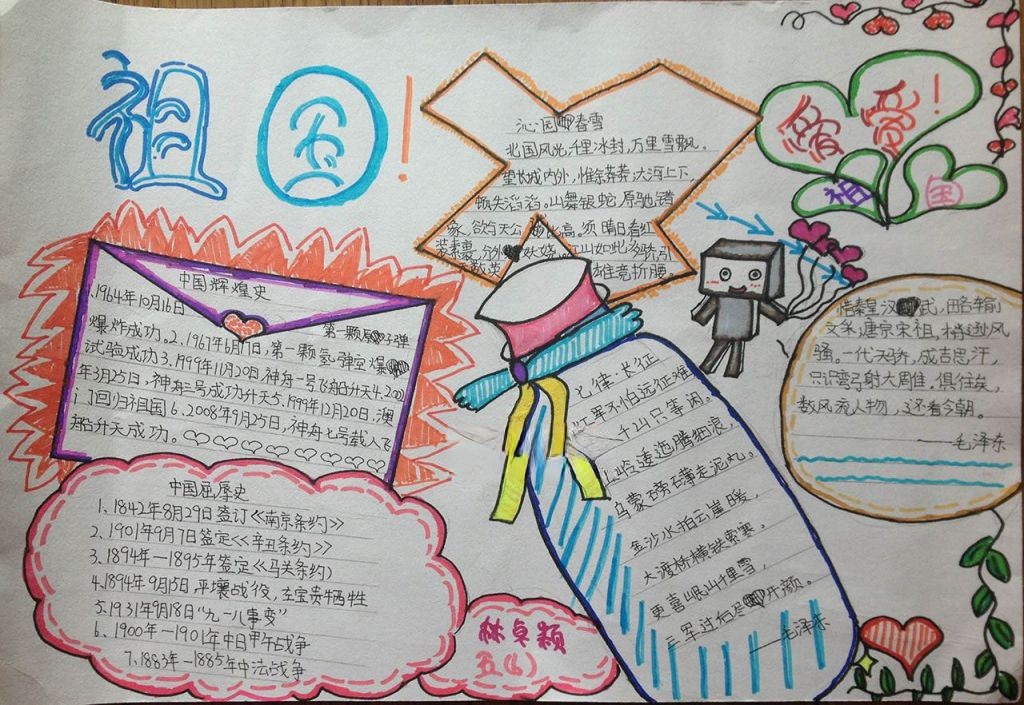 祖国!
沁园春雪
北国风光,千里冰封,万里雪飘。
望长城内外,惟余莽莽,大河上下,
顿失滔滔。山舞银蛇,原驰错
象,欲与天公比高。须晴日看红
装素裹,分外妖娆。江山如此多娇,引
雄竞折腰。
热爱!
祖国
惜秦皇汉武,略输
文采,唐宗宋祖,稍逊风
骚。一代天骄,成吉思汗,
只识弯弓射大雕。俱往矣,
数风流人物,还看今朝。
——毛泽东
中国辉煌史
1、1964年10月16日 第一颗原子弹
爆炸成功。2、1967年6月17日,第一颗氢弹空爆
试验成功3、1999年11月20日,神舟一号飞船升天4、2001
年3月25日,神舟三号成功升天5、1999年12月20日,澳
门回归祖国6、2008年9月25日,神舟七号载人飞
船升天成功。
中国屈辱史
1、1842年8月29日签订《南京条约》
2、1901年9月7日签定《辛丑条约》
3、1894年—1895年签定《马关条约》
4、1894年9月15日,平壤战役,左宝贵牺牲
5、1931年9月18日“九一八事变”
6、1900年—1901年中日甲午战争
7、1883年—1885年中法战争
林卓颖
五(6)
七律·长征
红军不怕远征难,
千山只等闲。
五岭逶迤腾细浪,
乌蒙磅礴走泥丸。
金沙水拍云崖暖,
大渡桥横铁索寒。
更喜岷山千里雪,
三军过后尽开颜。
——毛泽东